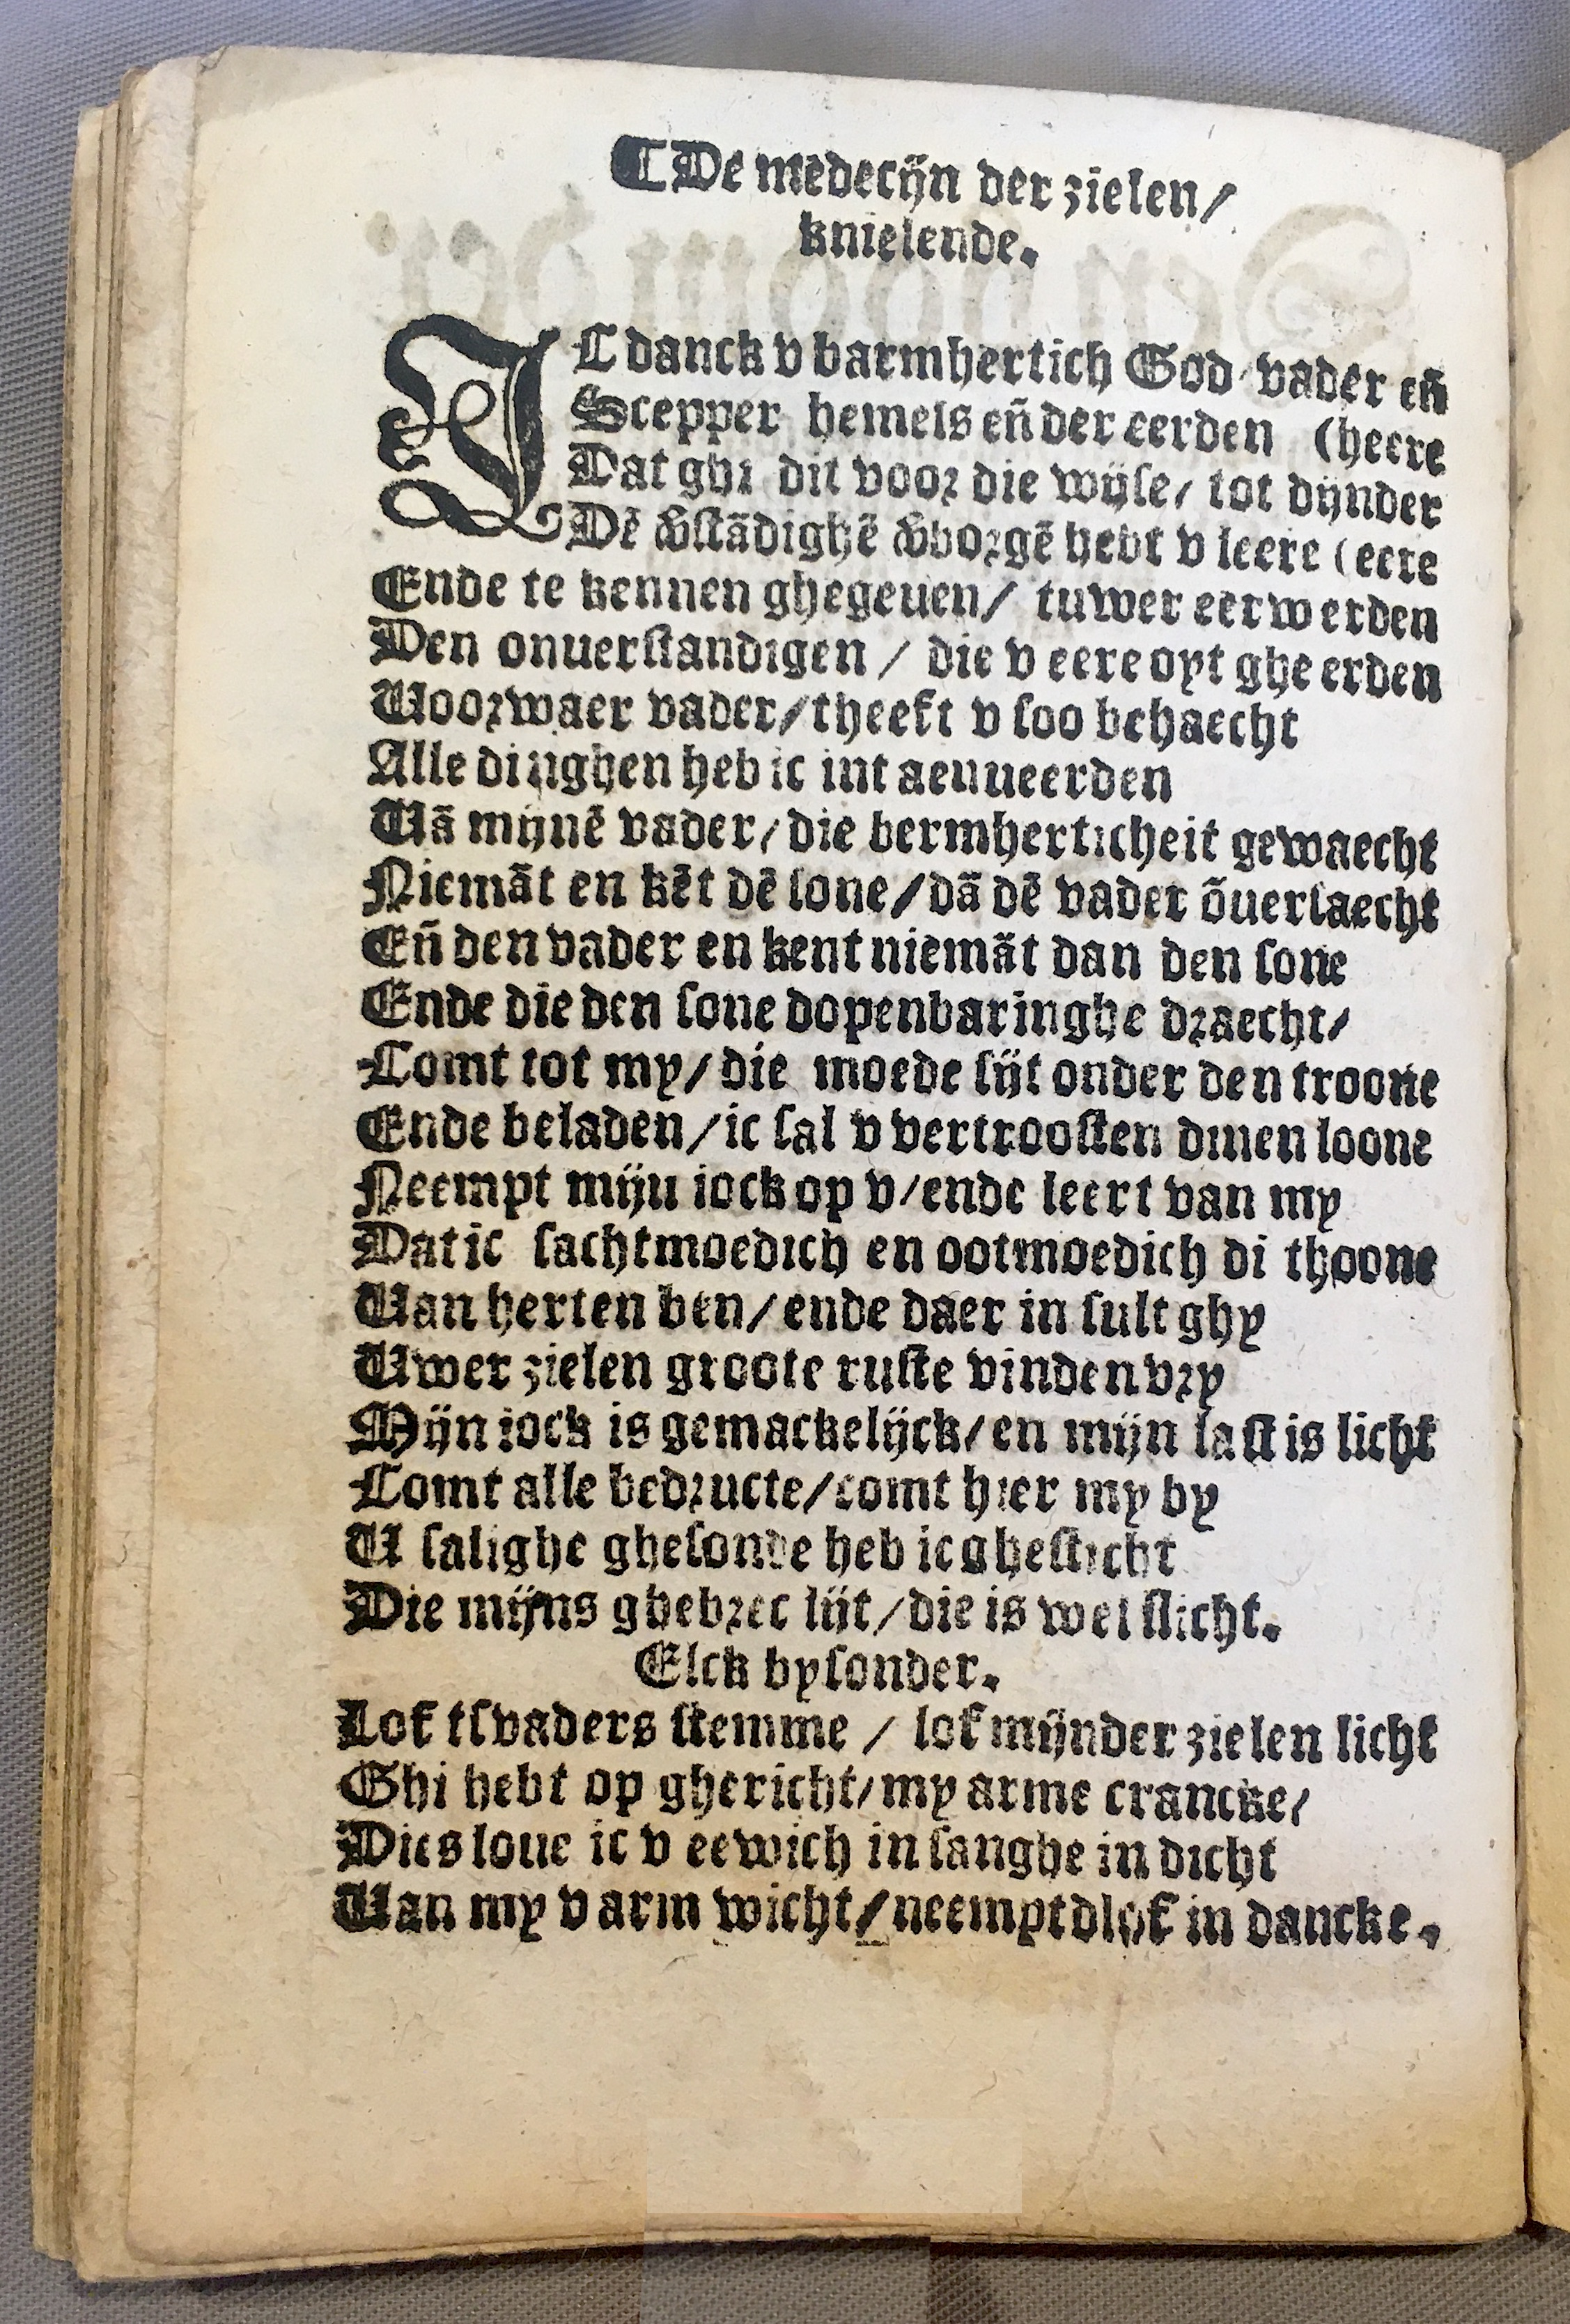 ⁋De medecijn der zielen/
knielende.
IC danck v barmhertich God vader eñ
Scepper hemels eñ der eerden (heere
Dat ghi dit voor die wijse/ tot dijnder
Dē v̄stādighē v̄borgē hebt v leere (eere
Ende te kennen ghegeuen/ tuwer eerwerden
Den onuerstandigen / die v eere oyt gheerden
Voorwaer vader/theeft v soo behaecht
Alle dinghen heb ic int aenueerden
Vā mijnē vader/die bermherticheit gewaecht
Niemāt en kēt dē sone/dā dē vader ōuersaecht
Eñ den vader en kent niemāt dan den sone
Ende die den sone dopenbaringhe draecht/
Comt tot my/die moede sijt onder den troone
Ende beladen/ic sal v vertroosten dinen loone
Neempt mijn iock op v/ende leert van my
Dat ic sachtmoedich en ootmoedich di thoone
Van herten ben/ende daer in sult ghy
Uwer zielen groote ruste vinden vry
Mijn iock is gemackelijck/en mijn last is licht
Comt alle bedructe/comt hier my by
U salighe ghesonde heb ic ghesticht
Die mijns ghebrec lijt/die is wel slicht.
Elck bysonder.
Lof tsvaders stemme / lof mijnder zielen licht
Ghi hebt op ghericht/my arme crancke/
Dies loue ic v eewich in sanghe in dicht
Van my v arm wicht/neempt dlof in dancke.